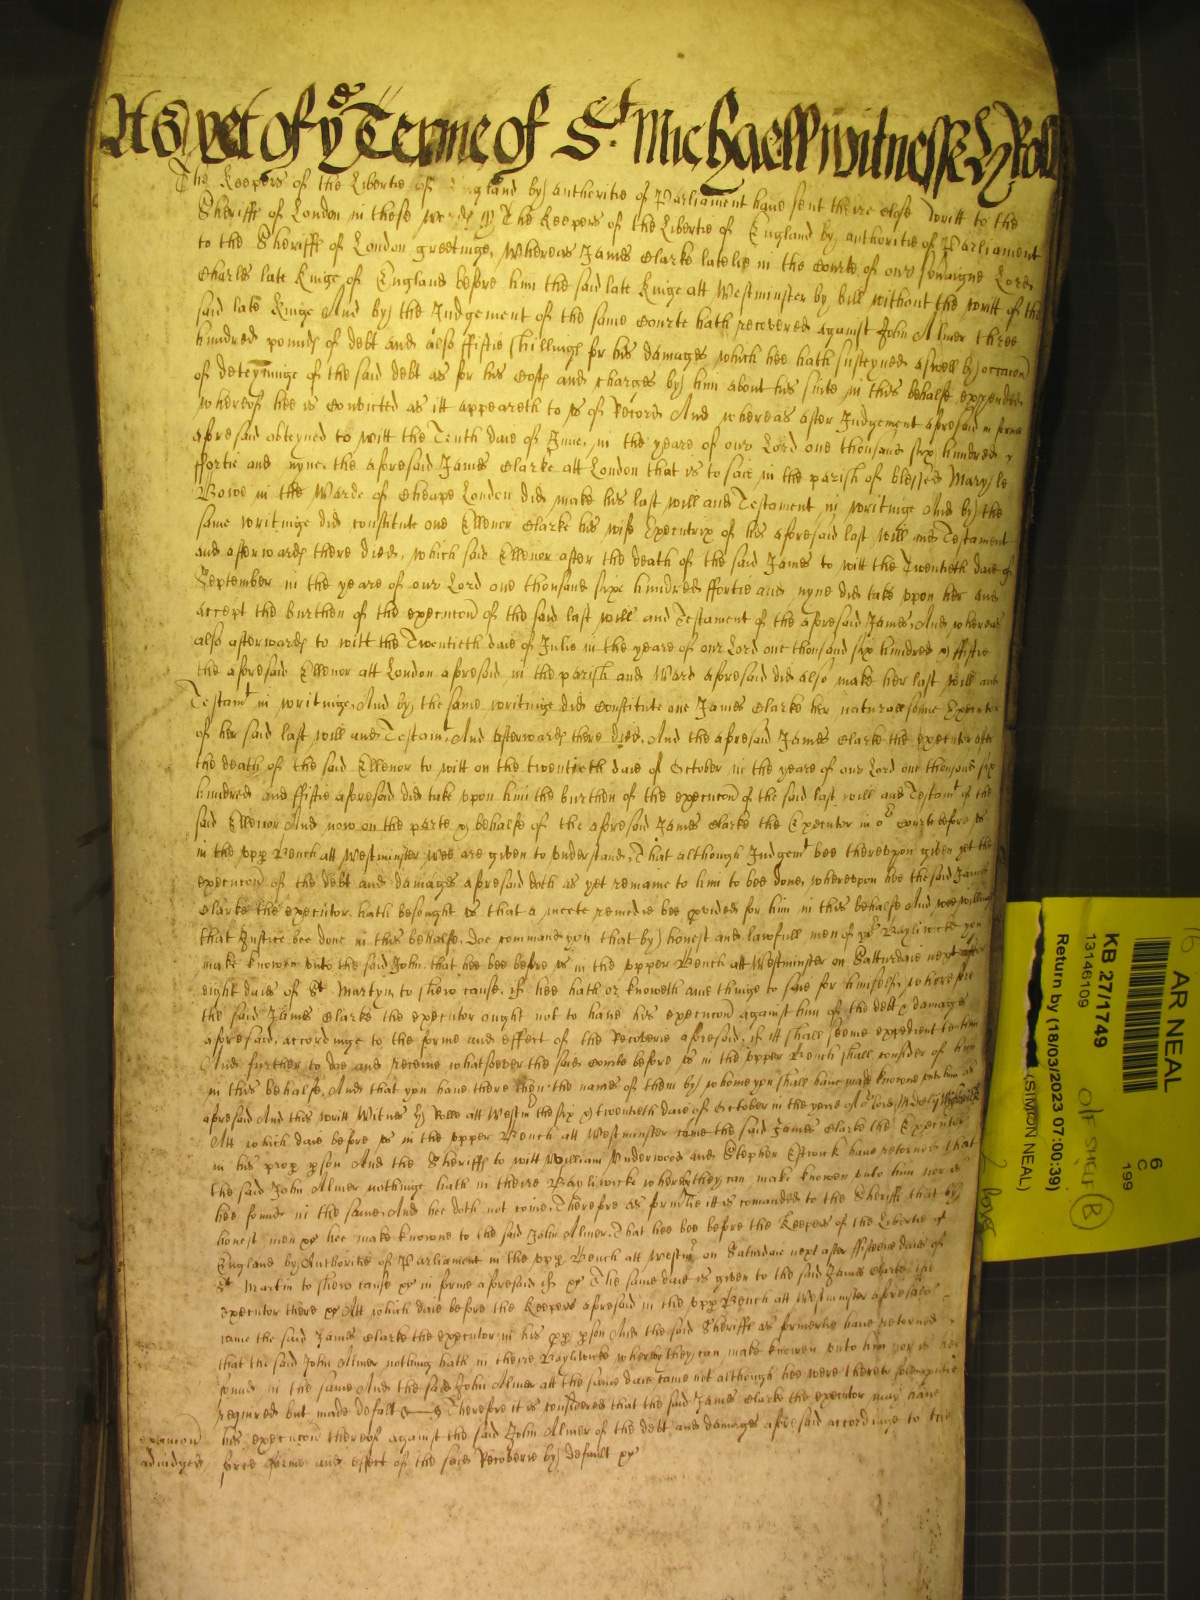 As yet of ye Terme of St. Michaell witnesse H Roll
The Keepers of the Libertie of England by authoritie of Parliament have sent theire close writt to the
Sheriffs of London in these words ss The Keepers of the Libertie of England by authoritie of Parliament
to the Sheriffs of London greetinge, Whereas James Clarke latelie in the Courte of our Soveraigne Lord
Charles late Kinge of England before him the said late Kinge att Westminster by bill without the writt of the
said late Kinge And by the Judgement of the same Courte hath recovered against John Almer three
hundred pounds of debt and also ffiftie shillings for his damages which hee hath susteyned aswell by occacon
of deteyninge of the said debt as for his Costs and charges by him about his suite in this behalfe expended
whereof hee is convicted as itt appeareth to us of Record And whereas after Judgement aforesaid in forme
aforesaid obteyned to witt the Tenth daie of June, in the yeare of our Lord one thousand six hundred
ffortie and nyne, the aforesaid James Clarke att London that is to saie in the parish of blessed Mary le
Bowe in the Warde of Cheape London did make his last will and Testament in writinge And by the
same writinge did constitute one Ellenor Clarke his wife Executrix of his aforesaid last will and Testament
and afterwards there died, which said Ellenor after the death of the said James to witt the Twentieth daie of
September in the yeare of our Lord one thousand six hundred ffortie and nyne did take upon her and
accept the burthen of the execucon of the said last will and Testament of the aforesaid James, And whereas
also afterwards to witt the Twentieth daie of Julie in the yeare of our Lord one thousand six hundred & ffiftie
the aforesaid Ellenor att London aforesaid in the parish and Ward aforesaid did also make her last will and
Testamt in writinge, And by the same writinge did Constitute one James Clarke her naturall sonne Executor
of her said last will and Testamt, And afterwards there died, And the aforesaid James Clarke the executor after
the death of the said Ellenor to witt on the twentieth daie of October in the yeare of our Lord one thousand six
hundred and ffiftie aforesaid did take upon him the burthen of the execucon of the said last will and Testamt of the
said Ellenor And now on the parte & behalfe of the aforesaid James Clarke the Executor in or Courte before us
in the upp Bench att Westminster wee are given to understand, That although Judgemt bee thereupon given yet the
execucon of the debt and damages aforesaid doth as yet remaine to him to bee done, whereupon hee the said James
Clarke the executor hath besought us that a meete remedie bee pvided for him in this behalfe And wee willing
that Justice bee done in this behalfe, Doe command you that by honest and lawfull men of yor Bayliwicke you
make knowen unto the said John that hee bee before us in the upper Bench att Westminster on Satturdaie next after
eight daies of St Martyn to shew cause if hee hath or knoweth anie thinge to saie for himselfe wherefore
the said James Clarke the executor ought not to have his execucon against him of the debt & damages
aforesaid, accordinge to the forme and effect of the Recoverie aforesaid, if itt shall seeme expedient to him
And further to doe and receive whatsoever the said Courte before us in the upper Bench shall consider of him
in this behalfe, And that you have there then the names of them by whome you shall have made knowne unto him as
aforesaid And this writt Witnes H Rolle att Westm the six & twentieth daie of October in the yeare of or Lord
Att which daie before us in the upper Bench att Westminster came the said James Clarke the Executor
in his prop pson And the Sheriffs to witt William Underwood and Stephen Estwick have retorned that
the said John Almer nothinge hath in theire Bayliwicke whereby they can make knowen unto him nor is
hee found in the same, And hee doth not come, Therefore as formerlie itt is comanded to the Sheriffs that by
honest men &c hee make knowne to the said John Almer, That hee bee before the Keepers of the Libertie of
England by Authoritie of Parliament in the upp Bench att Westmr on Saturdaie next after ffifteene daies of
St Martin to shew cause &c in forme aforesaid if &c The same daie is given to the said James Clarke the
executor there &c Att which daie before the Keepers aforesaid in the upp Bench att Westminster aforesaid
came the said James Clarke the executor in his pp pson And the said Sheriffs as formerlie have retorned
that the said John Almer nothing hath in theire Bayliwicke whereby they can make knowen unto him nor is hee
found in the same And the said John Almer att the same daie came not although hee were thereto solempnlie
required but made default Therefore it is considered that the said James Clarke the executor may have
execucon his execucon thereof against the said John Almer of the debt and damages aforesaid accordinge to the
adiudged force forme and effect of the said Recoverie by default &c
AR NEAL
6
C
199
KB 27/1749
13146109
Return by (18/03/2023 07:00:39)
(SIMON NEAL)
B